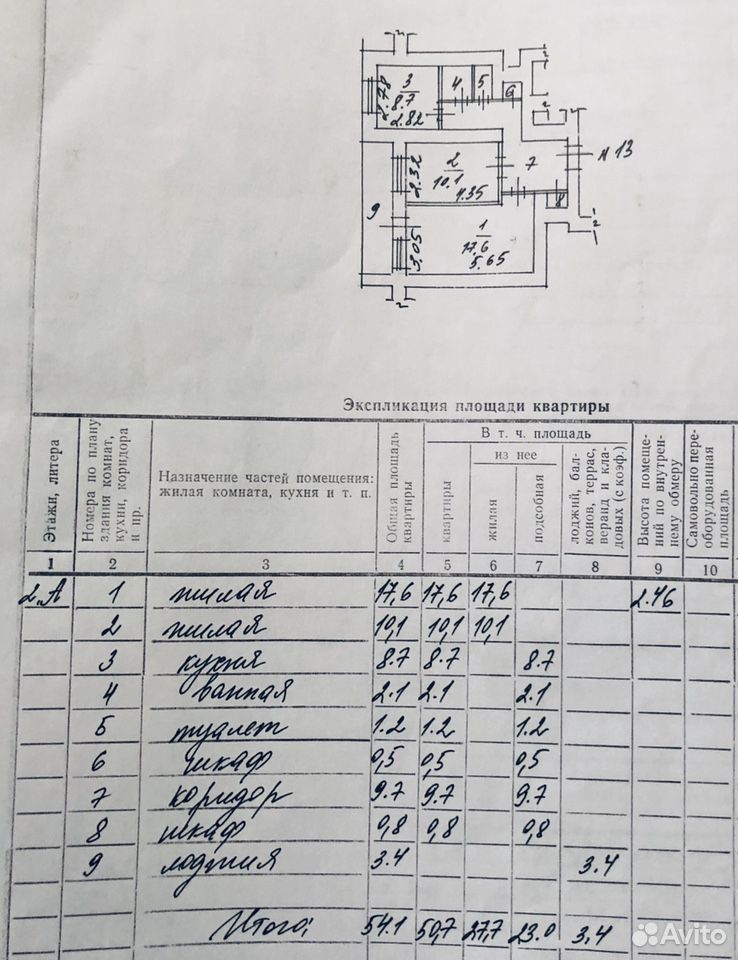 2
2
3
8.7
2.78
2.82
4
5
6
2
2
2
10.1
2.32
4.35
7
N 13
8
9
1
17.6
3.05
5.65
2
2
Экспликация площади квартиры
Этажи, литера
Номера по плану здания комнат, кухни, коридора и пр.
Назначение частей помещения: жилая комната, кухня и т. п.
Общая площадь квартиры
В т. ч. площадь
квартиры
из нее
жилая
подсобная
лоджий, балконов, террас, веранд и кладовых (с коэф.)
Высота помещений по внутреннему обмеру
Самовольно переоборудованная площадь
1 2 3 4 5 6 7 8 9 10
2.А 1 жилая 17,6 17,6 17,6 2.46
2 жилая 10,1 10,1 10,1
3 кухня 8.7 8.7 8.7
4 ванная 2.1 2.1 2.1
5 туалет 1.2 1.2 1.2
6 шкаф 0,5 0,5 0,5
7 коридор 9.7 9.7 9.7
8 шкаф 0,8 0,8 0,8
9 лоджия 3.4 3.4
Итого: 54.1 50,7 27,7 23.0 3,4
Avito